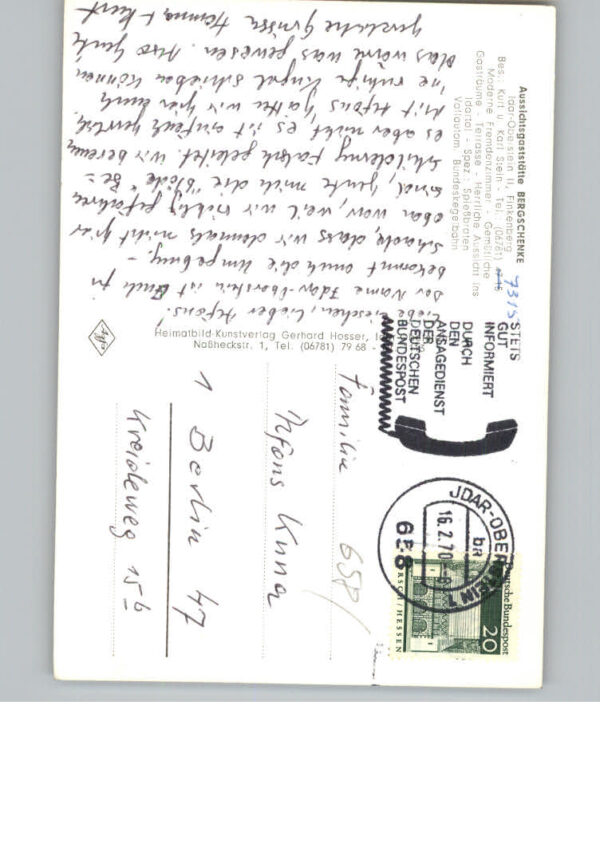 Aussichtsgaststätte BERGSCHENKE
Idar-Oberstein II, Finkenberg
Bes.: Kurt u. Karl Stein - Tel. (06781)
7315
Moderne Fremdenzimmer - Gemütliche
Gasträume - Terrasse - Herrliche Aussicht ins
Idartal - Spez.: Spießbraten
Vollautom. Bundeskegelbahn
Lieschen, lieber Alfons!
Der Name Idar-Oberstein ist Euch ja
bekannt auch die Umgebung. -
Schade, dass wir damals nicht hier
oben waren, weil wir richtig gefahren
sind, heute mich die "blöde" Be=
schilderung falsch geleitet. Wir bereuen
es aber nicht es ist einfach herrlich.
Mit Alfons hätten wir hier auch
'ne ruhige Kugel schieben können
das wäre was gewesen. Also
Herzliche Grüsse Hanna + Kurt
Heimatbild-Kunstverlag Gerhard Hosser
Naßheckstr. 1, Tel. (06781) 79 68
STETS
GUT
INFORMIERT
DURCH
DEN
ANSAGEDIENST
DER
DEUTSCHEN
BUNDESPOST
JDAR-OBERSTEIN 1
br
16.2.70
658
Deutsche Bundespost
20
LORSCH/HESSEN
Familie
Alfons Kuna
1 Berlin 47
Kreideweg 15b
658/